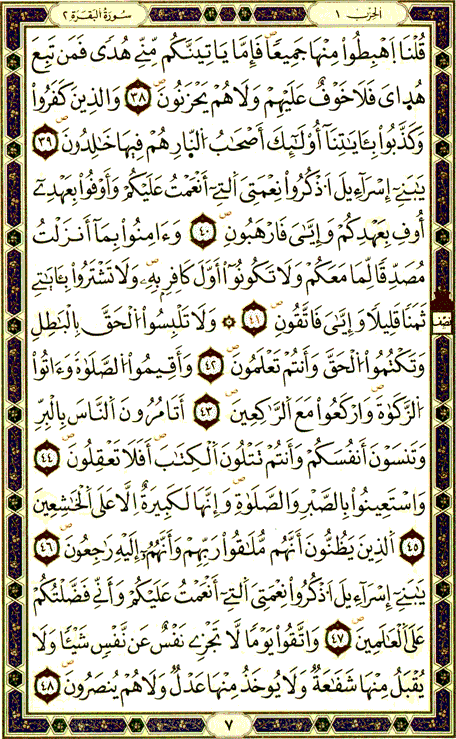 سورة البقرة ٢
الحزب ١
قُلْنَا اَهْبِطُواْ مِنْهَا جَمِيعاً فَإِمَّا يَاتِيَنَّكُم مِّنِّے هُدىً فَمَن تَبِعَ
هُدَايَ فَلَا خَوْفٌ عَلَيْهِمْ وَلَا هُمْ يَحْزَنُونَ ٣٨ وَالذِينَ كَفَرُواْ
وَكَذَّبُواْ بِـَٔايَٰتِنَآ أُوْلَٰٓئِكَ أَصْحَٰبُ النّ۪ارِ هُمْ فِيهَا خَٰلِدُونَ ٣٩
يَٰبَنِےٓ إِسْرَآءِيلَ اَ۟ذْكُرُواْ نِعْمَتِيَ اَلتِےٓ أَنْعَمْتُ عَلَيْكُمْ وَأَوْفُواْ بِعَهْدِےٓ
أُوفِ بِعَهْدِكُمْ وَإِيَّٰيَ فَارْهَبُونِ ٤٠ وَءَامِنُواْ بِمَآ أَنزَلْتُ
مُصَدِّقاً لِّمَا مَعَكُمْ وَلَا تَكُونُوٓاْ أَوَّلَ كَافِرٍ بِهِۦ وَلَا تَشْتَرُواْ بِـَٔايَٰتِے
ثَمَناً قَلِيلاً وَإِيَّٰيَ فَاتَّقُونِ ٤١ ۞ وَلَا تَلْبِسُواْ الْحَقَّ بِالْبَٰطِلِ
نصف
وَتَكْتُمُواْ الْحَقَّ وَأَنتُمْ تَعْلَمُونَ ٤٢ وَأَقِيمُواْ الصَّلَوٰةَ وَءَاتُواْ
الزَّكَوٰةَ وَارْكَعُواْ مَعَ الرَّٰكِعِينَ ٤٣ أَتَامُرُونَ النَّاسَ بِالْبِرِّ
وَتَنسَوْنَ أَنفُسَكُمْ وَأَنتُمْ تَتْلُونَ الْكِتَٰبَ أَفَلَا تَعْقِلُونَ ٤٤
وَاسْتَعِينُواْ بِالصَّبْرِ وَالصَّلَوٰةِ وَإِنَّهَا لَكَبِيرَةٌ اِلَّا عَلَى الْخَٰشِعِينَ
٤٥ اَ۬لذِينَ يَظُنُّونَ أَنَّهُم مُّلَٰقُواْ رَبِّهِمْ وَأَنَّهُمُۥٓ إِلَيْهِ رَٰجِعُونَ ٤٦
يَٰبَنِےٓ إِسْرَآءِيلَ اَ۟ذْكُرُواْ نِعْمَتِيَ اَلتِےٓ أَنْعَمْتُ عَلَيْكُمْ وَأَنِّے فَضَّلْتُكُمْ
عَلَى الْعَٰلَمِينَ ٤٧ وَاتَّقُواْ يَوْماً لَّا تَجْزِے نَفْسٌ عَن نَّفْسٍ شَيْـٔاً وَلَا
يُقْبَلُ مِنْهَا شَفَٰعَةٌ وَلَا يُوخَذُ مِنْهَا عَدْلٌ وَلَا هُمْ يُنصَرُونَ ٤٨
٧